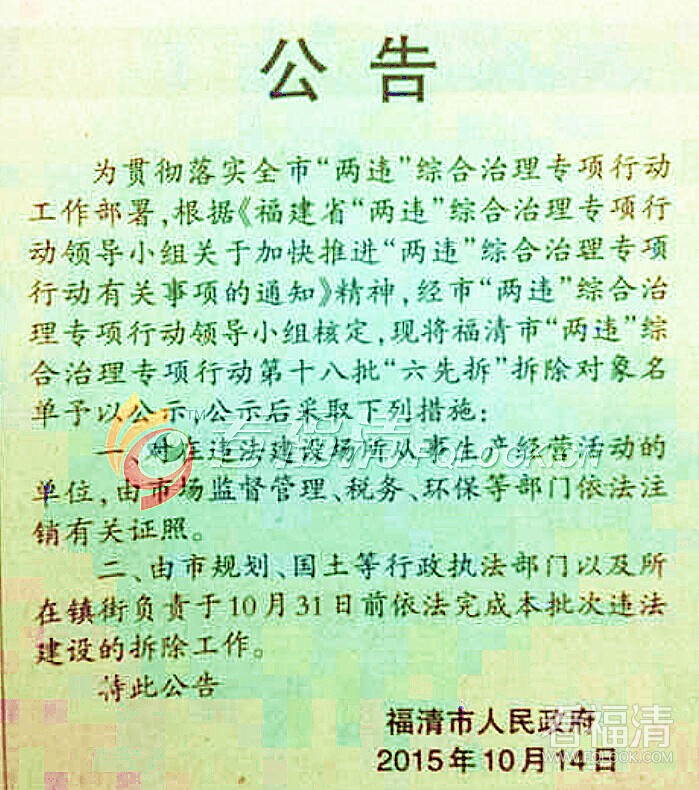 公告
为贯彻落实全市“两违”综合治理专项行动
工作部署,根据《福建省“两违”综合治理专项行
动领导小组关于加快推进“两违”综合治理专项
行动有关事项的通知》精神,经市“两违”综合治
理专项行动领导小组核定,现将福清市“两违”综
合治理专项行动第十八批“六先拆”拆除对象名
单予以公示,公示后采取下列措施:
一、对在违法建设场所从事生产经营活动的
单位,由市场监督管理、税务、环保等部门依法注
销有关证照。
二、由市规划、国土等行政执法部门以及所
在镇街负责于10月31日前依法完成本批次违法
建设的拆除工作。
特此公告
福清市人民政府
2015年10月14日
看福清
FQLOOK.COM